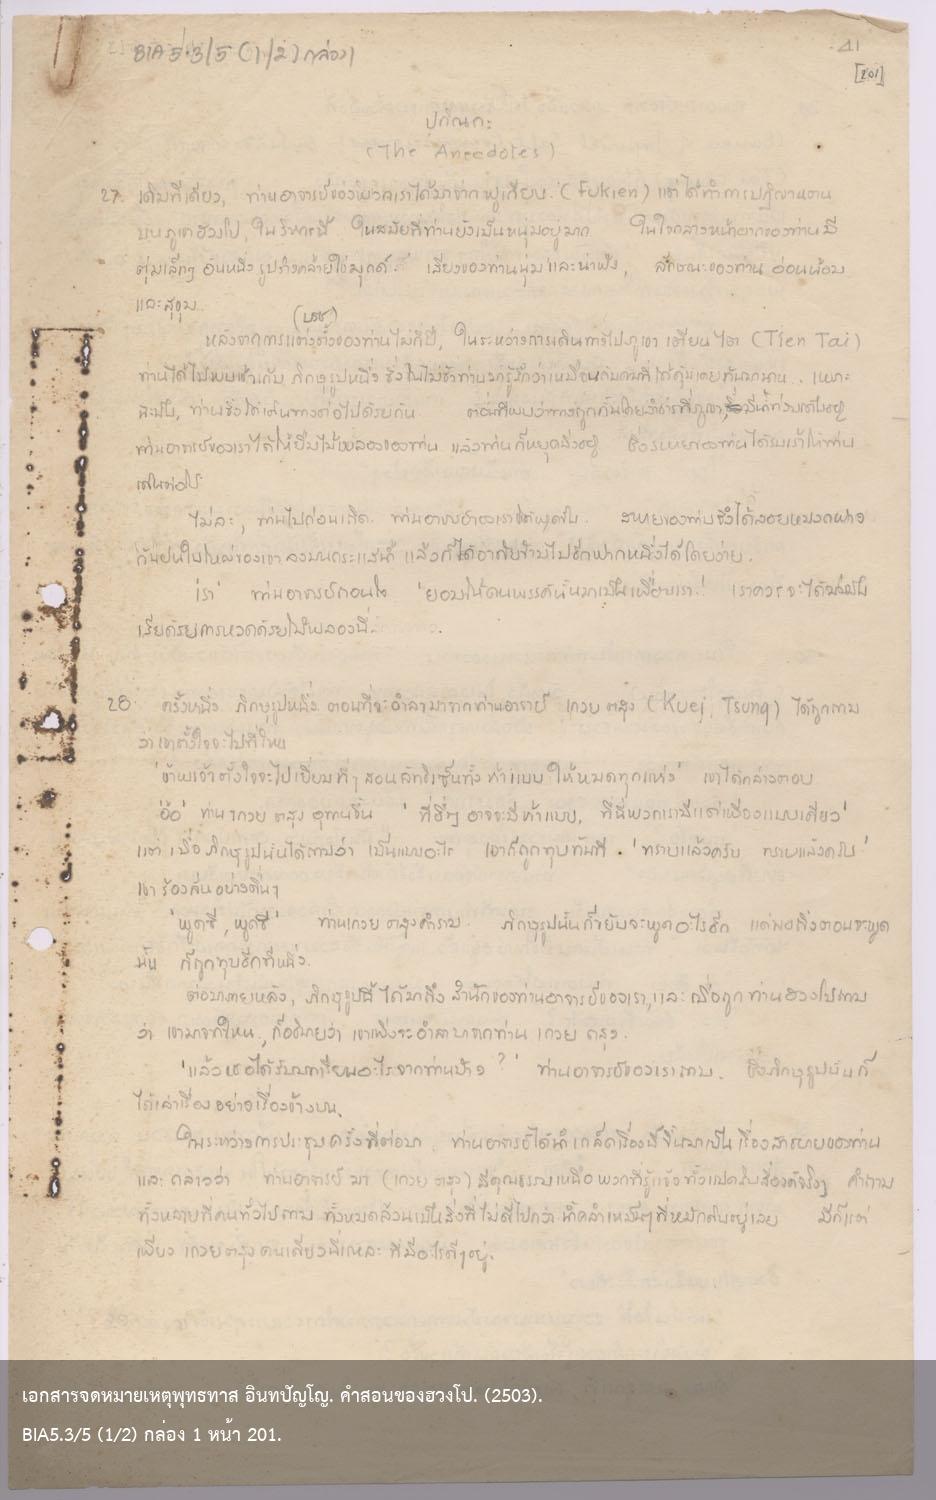 BIA 5.3/5 (1/2) กล่อง 1
41
[201]
ปกิณกะ
(The Anecdotes)
27. เดิมทีเดียว, ท่านอาจารย์ของพวกเราได้มาจาก ฟูเกียน. (Fukien) แต่ได้ทำการปฏิญาณตน
บนภูเขาฮวงโป, ในวิหารนี้ ในสมัยที่ท่านยังเป็นหนุ่มอยู่มาก ในใจกลางหน้าผากของท่านมี
ตุ่มเล็กๆ อันหนึ่ง รูปร่างคล้ายไข่มุกด์. เสียงของท่านนุ่ม และน่าฟัง, ลักษณะของท่าน อ่อนน้อม
และสุขุม.
(บวช)
หลังจากการแต่งตั้งของท่านไม่กี่ปี, ในระหว่างการเดินทางไปภูเขา เตียนไต (Tien Tai)
ท่านได้ไปพบเข้ากับ ภิกษุรูปหนึ่ง ซึ่งในไม่ช้าท่านก็รู้สึกว่าเหมือนกับคนที่ได้คุ้นเคยกันมานาน. เพราะ
ฉะนั้น, ท่านจึงได้เดินทางต่อไปด้วยกัน
ท่านอาจารย์ของเราได้ให้ยืมไม้เท้าของท่าน แล้วท่านก็หยุดนิ่งอยู่ ซึ่งสหายของท่านได้รบเร้าให้ท่าน
เดินต่อไป
ไม่ละ, ท่านไปก่อนเถิด. ท่านอาจารย์ของเรา สหายของท่านจึงได้ลอยหมวกฟาง
กันฝนใบใหญ่ของเขา ลงบนกระแสน้ำ แล้วก็ได้อาศัยข้ามไปอีกฟากหนึ่งได้โดยง่าย.
'เรา' ท่านอาจารย์ถอนใจ 'ยอมให้คนพรรค์นั้นมาเป็นเพื่อนเรา!' เราควรจะได้
เสียด้วยการหวดด้วยไม้พลองนี้.
28. ครั้งหนึ่ง ภิกษุรูปหนึ่ง ตอนที่จะอำลามาจากท่านอาจารย์ เกวย ตสุง (Kuei Tsung) ได้ถูกถาม
ว่าเขาตั้งใจจะไปที่ไหน
'ข้าพเจ้าตั้งใจจะไปเยี่ยมที่ๆ สอนลัทธิเซ็นทั้ง ห้าแบบ ให้หมดทุกแห่ง' เขาได้กล่าวตอบ
'อ้อ' ท่าน เกวย ตสุง อุทานขึ้น 'ที่อื่นๆ อาจจะมีห้าแบบ, ที่นี่พวกเรามีแต่เพียงแบบเดียว'
แต่ เมื่อ ภิกษุรูปนั้นได้ถามว่า เป็นแบบอะไร เขาก็ถูกทุบทันที. 'ทราบแล้วครับ ทราบแล้วครับ'
เขาร้องลั่นอย่างตื่นๆ
'พูดซี, พูดซี' ท่านเกวย ตสุงคำราม. ภิกษุรูปนั้นก็ขยับจะพูดอะไรอีก แต่พอถึงตอนจะพูด
นั้น ก็ถูกทุบอีกทีหนึ่ง.
ต่อมาภายหลัง, ภิกษุรูปนี้ ได้มาถึง สำนักของท่านอาจารย์ของเรา, และเมื่อถูก ท่านฮวงโปถาม
ว่า เขามาจากไหน, ก็อธิบายว่า เขาเพิ่งจะอำลามาจากท่าน เกวย ตสุง.
'แล้วเธอได้รับบทเรียนอะไรจากท่านบ้าง?' ท่านอาจารย์ของเราถาม. ซึ่งภิกษุรูปนั้นก็
ได้เล่าเรื่องอย่างเรื่องข้างบน.
ในระหว่างการประชุมครั้งที่ต่อมา ท่านอาจารย์ได้นำเกล็ดเรื่องนี้ขึ้นมาเป็นเรื่องสาธยายของท่าน
และกล่าวว่า ท่านอาจารย์ มา (เกวย ตสุง) มีคุณธรรมเหนือพวกที่รู้แจ้ง คำถาม
ทั้งหลายที่คนทั่วไปถาม ทั้งหมดล้วนเป็นสิ่งที่ไม่ดีไปกว่า อยู่เลย มีก็แต่
เพียง เกวย ตสุง คนเดียวนี่แหละ ที่มีอะไรดีๆ อยู่.
เอกสารจดหมายเหตุพุทธทาส อินทปัญโญ. คำสอนของฮวงโป. (2503).
BIA5.3/5 (1/2) กล่อง 1 หน้า 201.